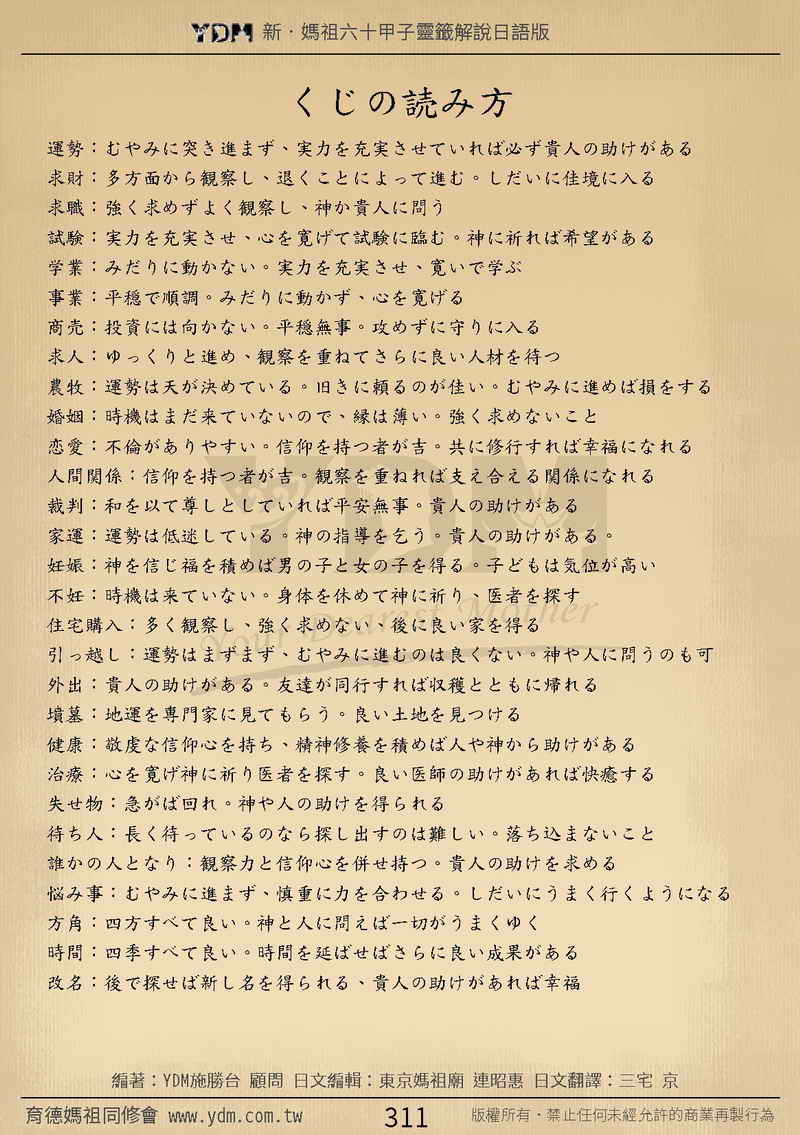 YDM 新・媽祖六十甲子靈籤解說日語版
くじの読み方
運勢：むやみに突き進まず、実力を充実させていれば必ず貴人の助けがある
求財：多方面から観察し、退くことによって進む。しだいに佳境に入る
求職：強く求めずよく観察し、神か貴人に問う
試験：実力を充実させ、心を寛げて試験に臨む。神に祈れば希望がある
学業：みだりに動かない。実力を充実させ、寛いで学ぶ
事業：平穏で順調。みだりに動かず、心を寛げる
商売：投資には向かない。平穏無事。攻めずに守りに入る
求人：ゆっくりと進め、観察を重ねてさらに良い人材を待つ
農牧：運勢は天が決めている。旧きに頼るのが佳い。むやみに進めば損をする
婚姻：時機はまだ来ていないので、縁は薄い。強く求めないこと
恋愛：不倫がありやすい。信仰を持つ者が吉。共に修行すれば幸福になれる
人間関係：信仰を持つ者が吉。観察を重ねれば支え合える関係になれる
裁判：和を以て尊しとしていれば平安無事。貴人の助けがある
家運：運勢は低迷している。神の指導を乞う。貴人の助けがある。
妊娠：神を信じ福を積めば男の子と女の子を得る。子どもは気位が高い
不妊：時機は来ていない。身体を休めて神に祈り、医者を探す
住宅購入：多く観察し、強く求めない、後に良い家を得る
引っ越し：運勢はまずまず、むやみに進むのは良くない。神や人に問うのも可
外出：貴人の助けがある。友達が同行すれば収穫とともに帰れる
墳墓：地運を専門家に見てもらう。良い土地を見つける
健康：敬虔な信仰心を持ち、精神修養を積めば人や神から助けがある
治療：心を寛げ神に祈り医者を探す。良い医師の助けがあれば快癒する
失せ物：急がば回れ。神や人の助けを得られる
待ち人：長く待っているのなら探し出すのは難しい。落ち込まないこと
誰かの人となり：観察力と信仰心を併せ持つ。貴人の助けを求める
悩み事：むやみに進まず、慎重に力を合わせる。しだいにうまく行くようになる
方角：四方すべて良い。神と人に問えば一切がうまくゆく
時間：四季すべて良い。時間を延ばせばさらに良い成果がある
改名：後で探せば新し名を得られる、貴人の助けがあれば幸福
YDM
Your Dearest Mother
編著：YDM施勝台 顧問 日文編輯：東京媽祖廟 連昭惠 日文翻譯：三宅 京
育德媽祖同修會 www.ydm.com.tw 311 版權所有・禁止任何未經允許的商業再製行為